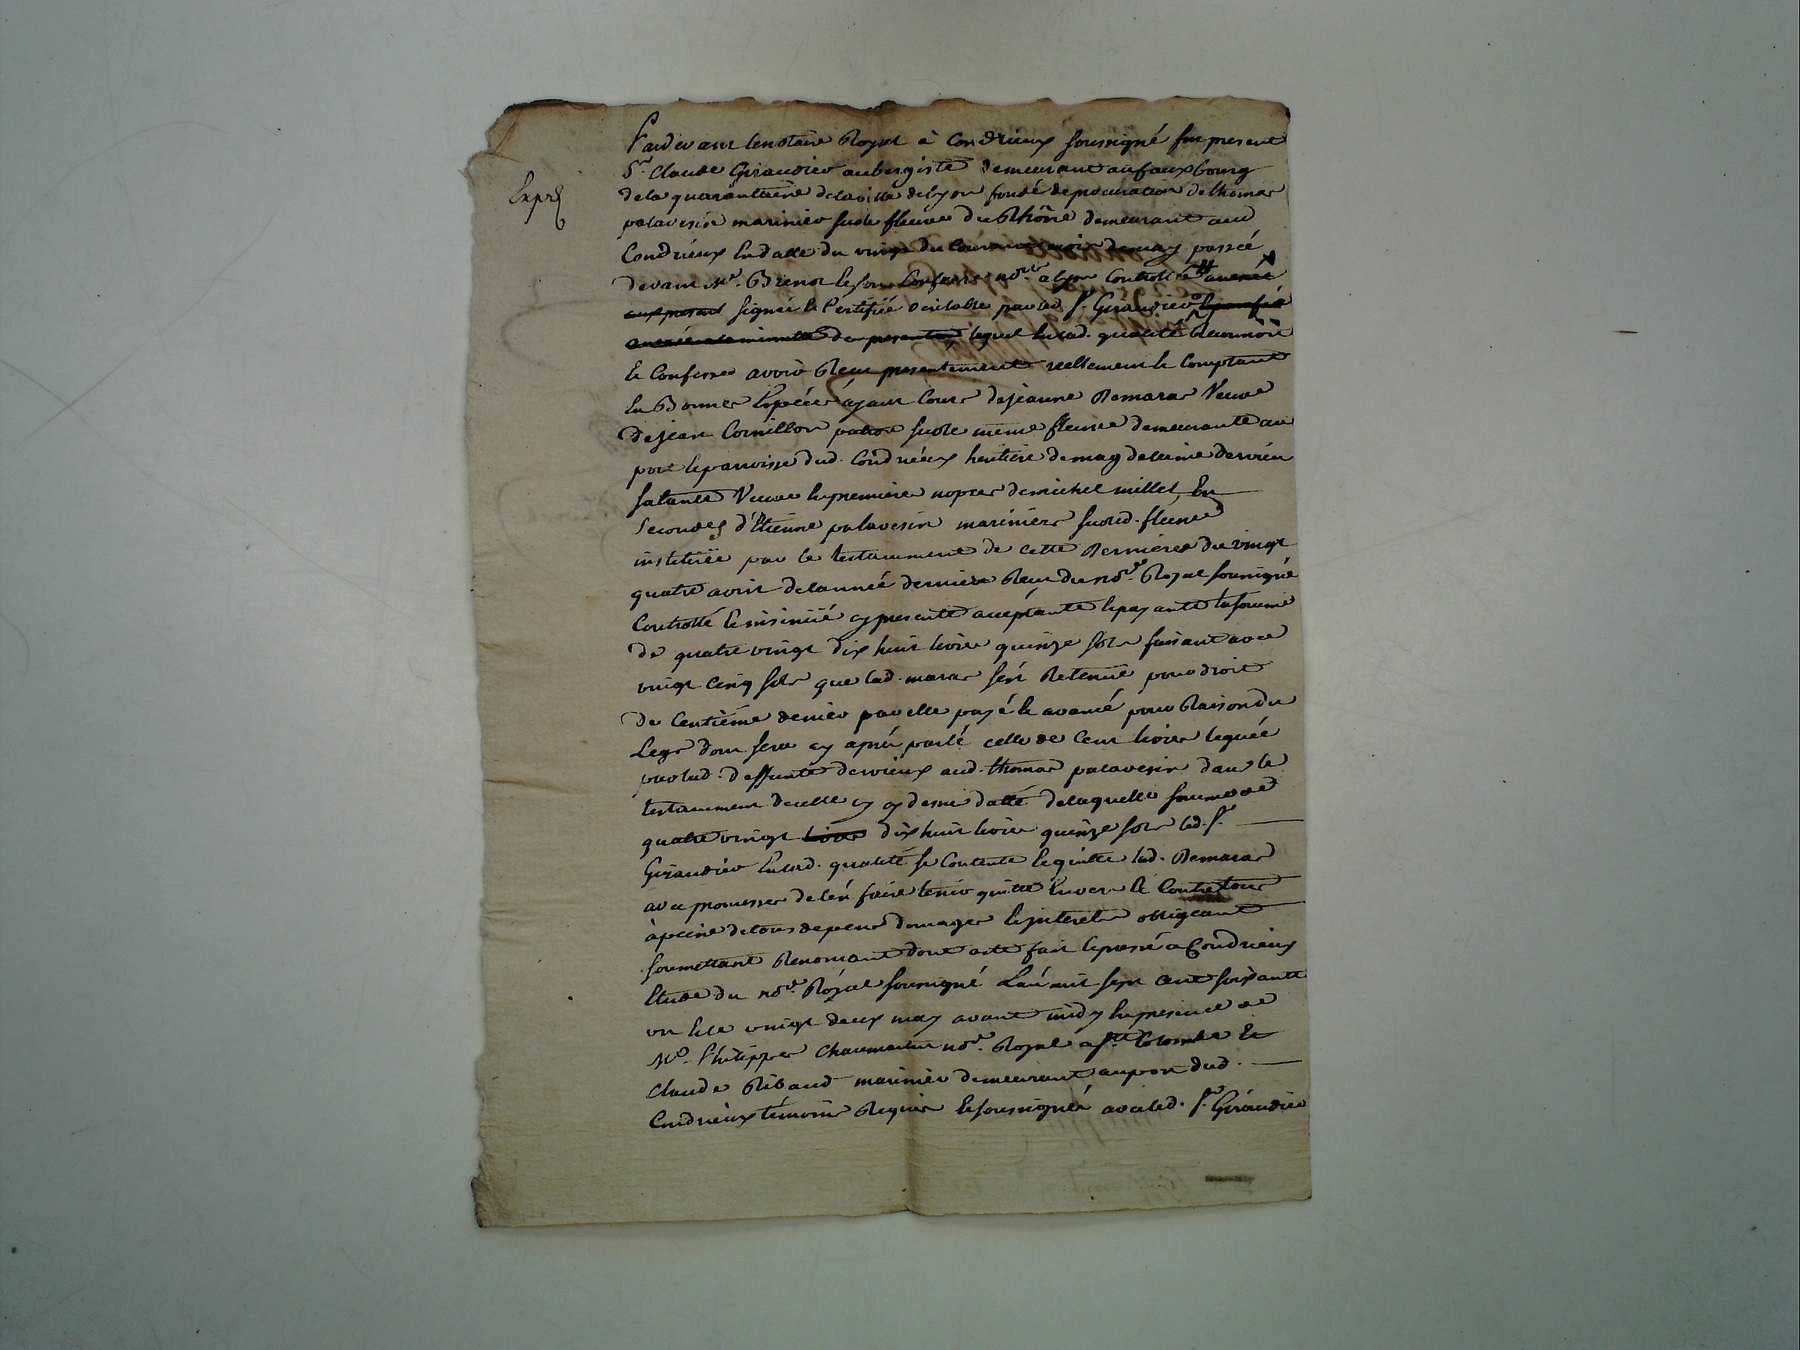 Pardevant le notaire Royal à Condrieux soussigné fut present
Sr. Claude Giraudier aubergiste demeurant au fauxbourg
de la quarantaine de la ville de Lyon fondé de procuration de thomas
Expé
palavesin marinier sur le fleuve du Rhône demeurant aud
Condrieux en datte du vingt du courant mois de may passée
devant Me. Brenot le son Confrere nores a Lyon Controllée
signée et Certiffié veritable par led Sr. Giraudier
des presentes lequel en lad. qualité Reconnoit
et Confesse avoir Reçu presentement reellement et Comptant
en Bonnes Espéces ayant Cours de jeanne Demaras Veuve
de jean Cornillon patron sur le même fleuve demeurante au
port et parroisse dud. Condrieux heritiere de magdeleine dervieu
sa tante Veuve en premiere nopces de michel millet, En
Secondes d'Etienne palavesin mariniers sur led. fleuve
instituée par le testamment de cette Derniere du vingt
quatre avril de l'année derniere Reçu du nore. Royal soussigné
Controllé et insinüé cy presente acceptante et payante la somme
de quatre vingt dix huit livres quinze sols faisant avec
vingt cinq sols que lad. maras s'est Retenüe pour droit
de Centiéme denier par elle payé et avancé pour Raison du
Legs dont sera cy aprés parlé celle de Cent livres leguée
par lad. deffunte dervieux aud. thomas palavesin dans le
testamment d'icelle cy cy dessus datté de laquelle somme de
quatre vingt livres dix huit livres quinze sols led. Sr.
Giraudier en lad. qualité se Contente et quitte lad. Demaras
avec promesses de l'en faire tenir quitte Envers et Contre tous
à peine de tous depens domages et interets obligeant
soumettant Renonçant dont acte fait et passé a Condrieux
Etude du nore. Royal soussigné L'an mil sept cent soixante
un et le vingt deux may avant midy en presence de
Me. Philippes Chaumartin nore. Royal a Ste Colombe et
Claude Ribaud marinier demeurant au port dud.
Condrieux témoins Requis et soussignés avec led. Sr. Giraudier